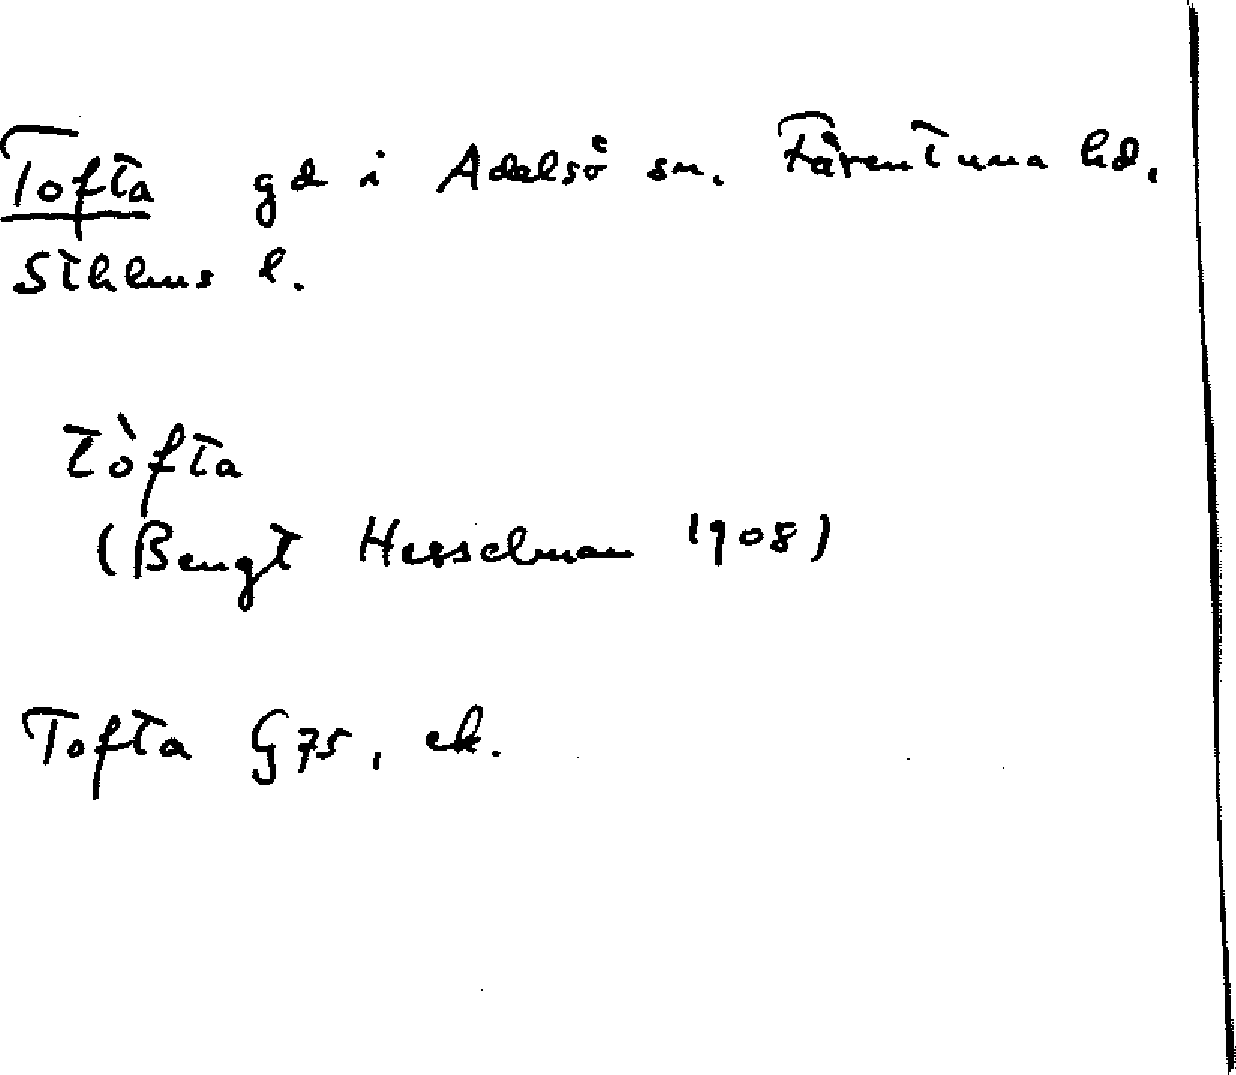 Tofta gd i Adelsö sn. Färentuna hd.
Sthlms l.
tòfta
(Bengt Hesselman 1908)
Tofta G75, ek.